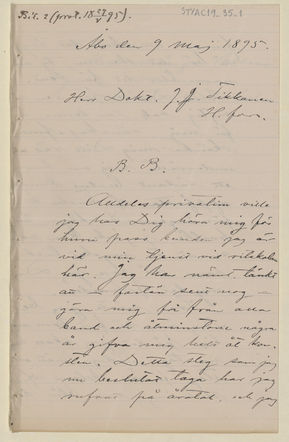 Bil. 2 (prot. 18 27/V 95).
STYAC19_35_1
Åbo den 9 maj 1895.
Herr Dokt. J. J. Tikkanen
H.fors.
B. B.
Alldeles privatim ville
jag hos Dig höra mig för
huru pass bunden jag är
vid min tjenst vid ritskolan
här. Jag har näml. tänkt
an fastän sent nog
göra mig fri från alla
band och åtminstone några
år gifva mig helt åt kon-
sten. Detta steg som jag
nu beslutat taga har jag
rufvat på åratal, och jag